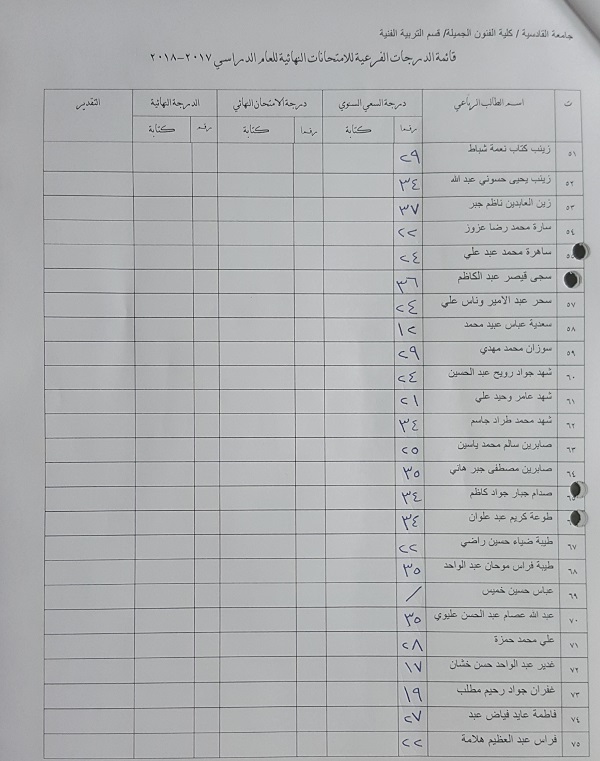 جامعة القادسية / كلية الفنون الجميلة/ قسم التربية الفنية
قائمة الدرجات الفرعية للامتحانات النهائية للعام الدراسي ٢٠١٧-٢٠١٨
ت اسم الطالب الرباعي درجة السعي السنوي درجة الامتحان النهائي الدرجة النهائية التقدير
رقما كتابة رقما كتابة رقم كتابة
٥١ زينب كتاب نعمة شباط ٢٩
٥٢ زينب يحيى حسوني عبد الله ٣٤
٥٣ زين العابدين ناظم جبر ٣٧
٥٤ سارة محمد رضا عزوز ٢٢
٥٥ ساهرة محمد عبد علي ٢٤
سجى قيصر عبد الكاظم ٣٦
٥٧ سحر عبد الامير وناس علي ٢٤
٥٨ سعدية عباس عبيد محمد ١٢
٥٩ سوزان محمد مهدي ٢٩
٦٠ شهد جواد رويح عبد الحسين ٢٤
٦١ شهد عامر وحيد علي ٢١
٦٢ شهد محمد طراد جاسم ٣٤
٦٣ صابرين سالم محمد ياسين ٢٥
٦٤ صابرين مصطفى جبر هاني ٣٥
صدام جبار جواد كاظم ٣٤
طوعة كريم عبد علوان ٣٤
٦٧ طيبة ضياء حسين راضي ٢٢
٦٨ طيبة فراس موحان عبد الواحد ٣٥
٦٩ عباس حسين خميس /
٧٠ عبد الله عصام عبد الحسن عليوي ٣٥
٧١ علي محمد حمزة ٢٨
٧٢ غدير عبد الواحد حسن خشان ١٧
٧٣ غفران جواد رحيم مطلب ١٩
٧٤ فاطمة عايد فياض عبد ٢٧
٧٥ فراس عبد العظيم هلامة ٢٢